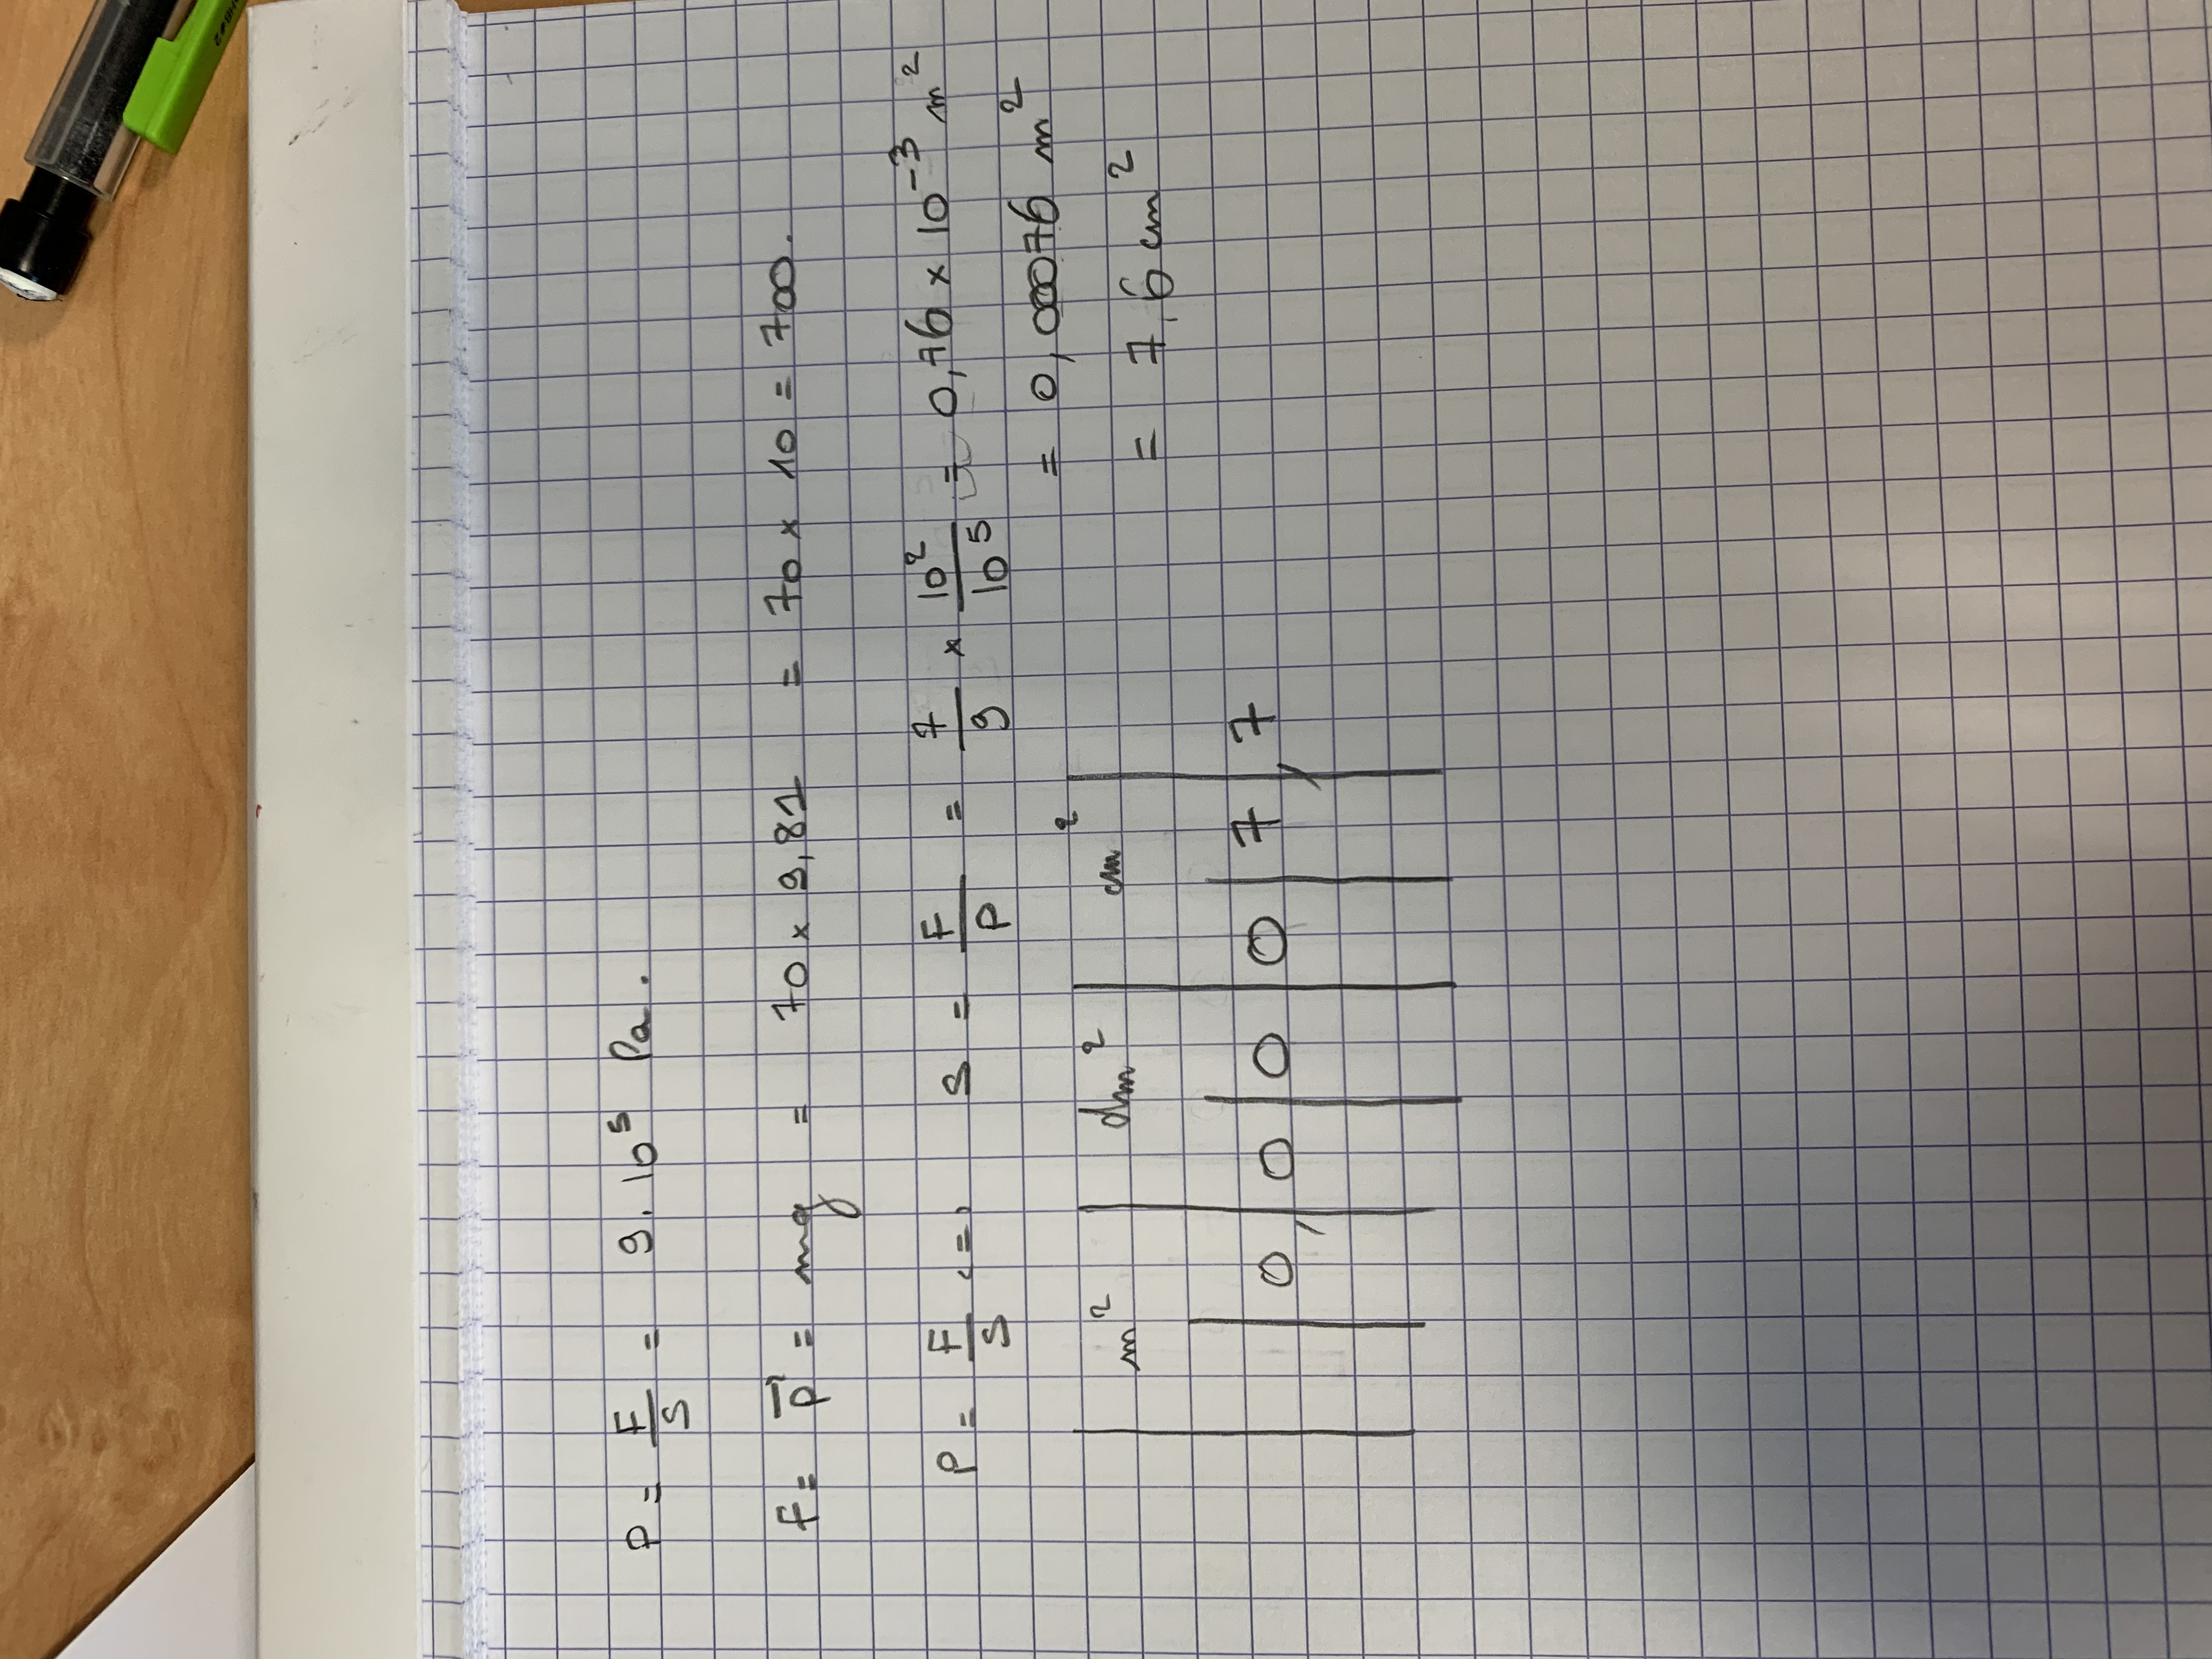 P = F/S = 9.10⁵ Pa.
F = P⃗ = mg = 70 x 9,81 = 70 x 10 = 700.
P = F/S <=> S = F/P = 7/9 x 10²/10⁵ = 0,76 x 10⁻³ m²
= 0,00076 m²
= 7,6 cm²
m² dm² cm²
0, 0 0 0 7, 7